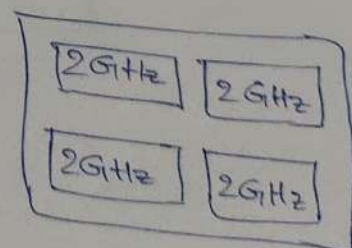 2GHz 2GHz
2GHz 2GHz